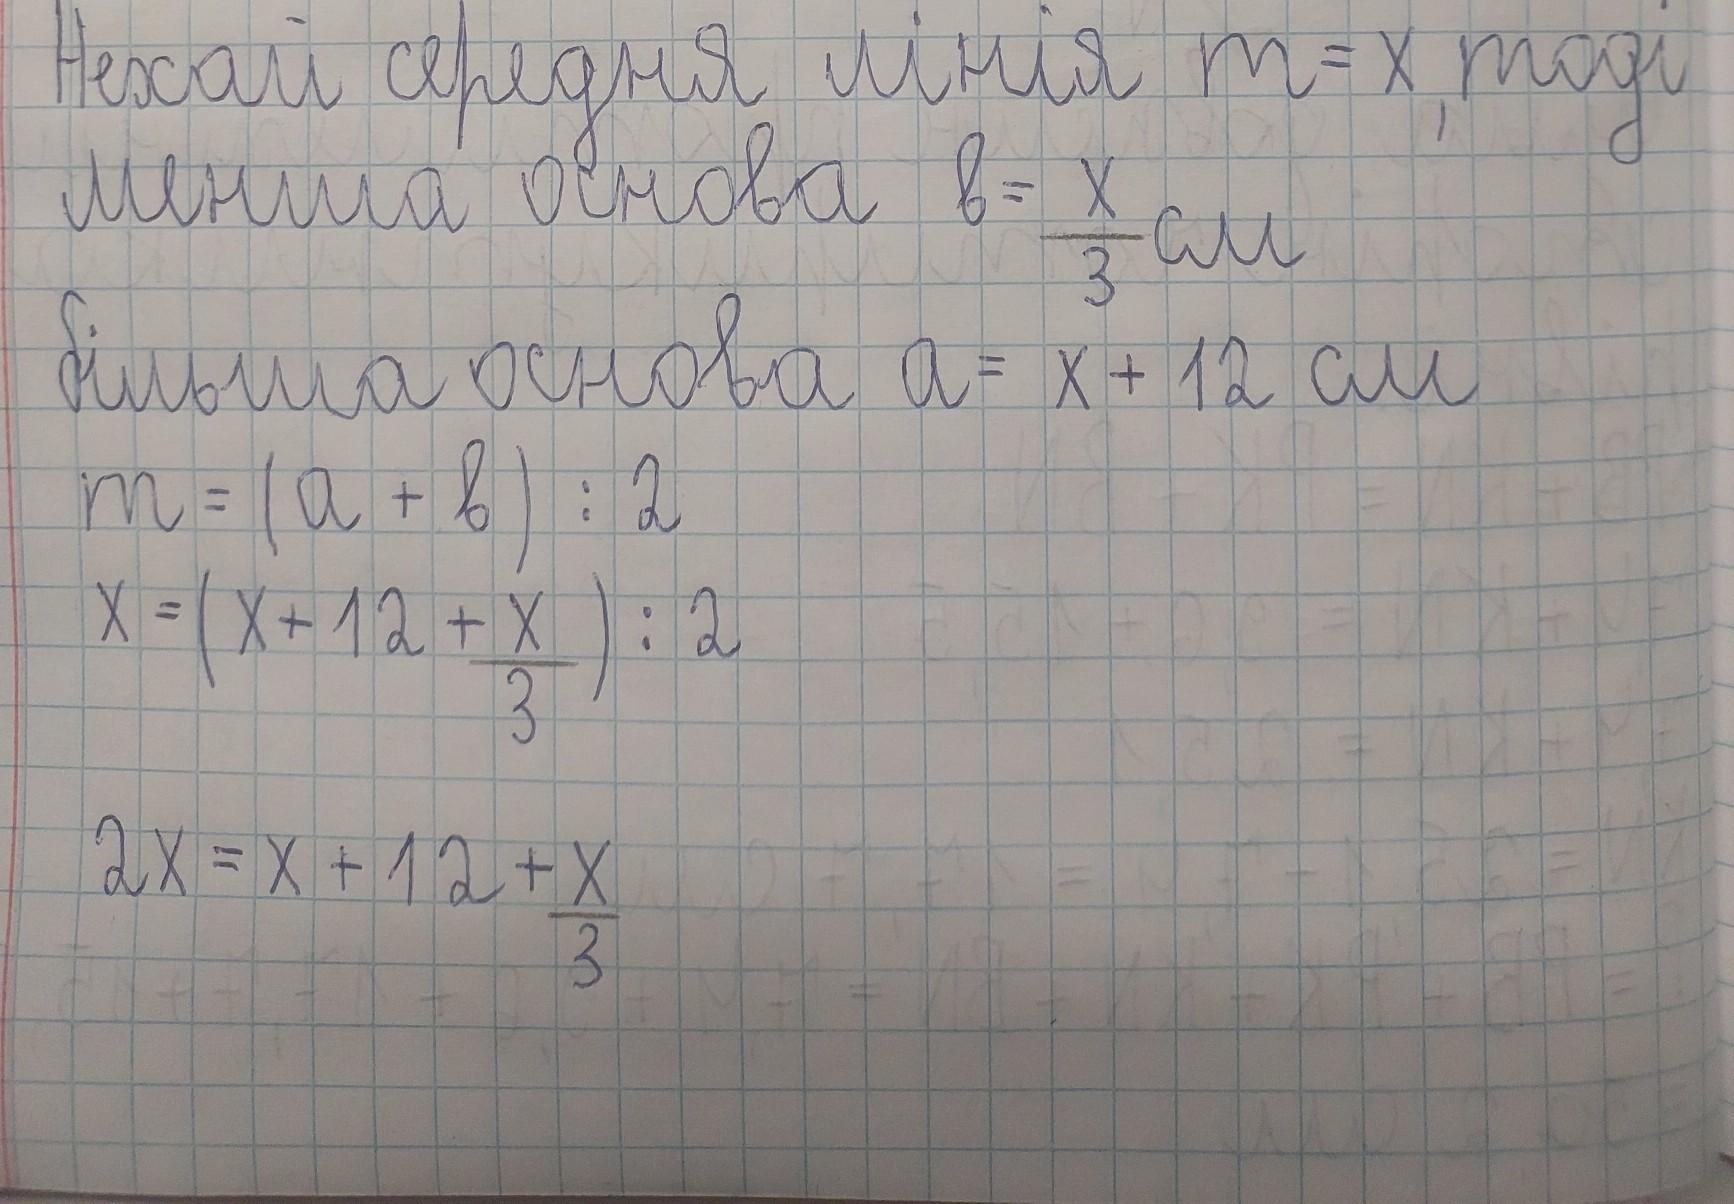 Нехай середня лінія m = x, тоді
менша основа b = x/3 см
більша основа a = x + 12 см
m = (a + b) : 2
x = (x + 12 + x/3) : 2
2x = x + 12 + x/3